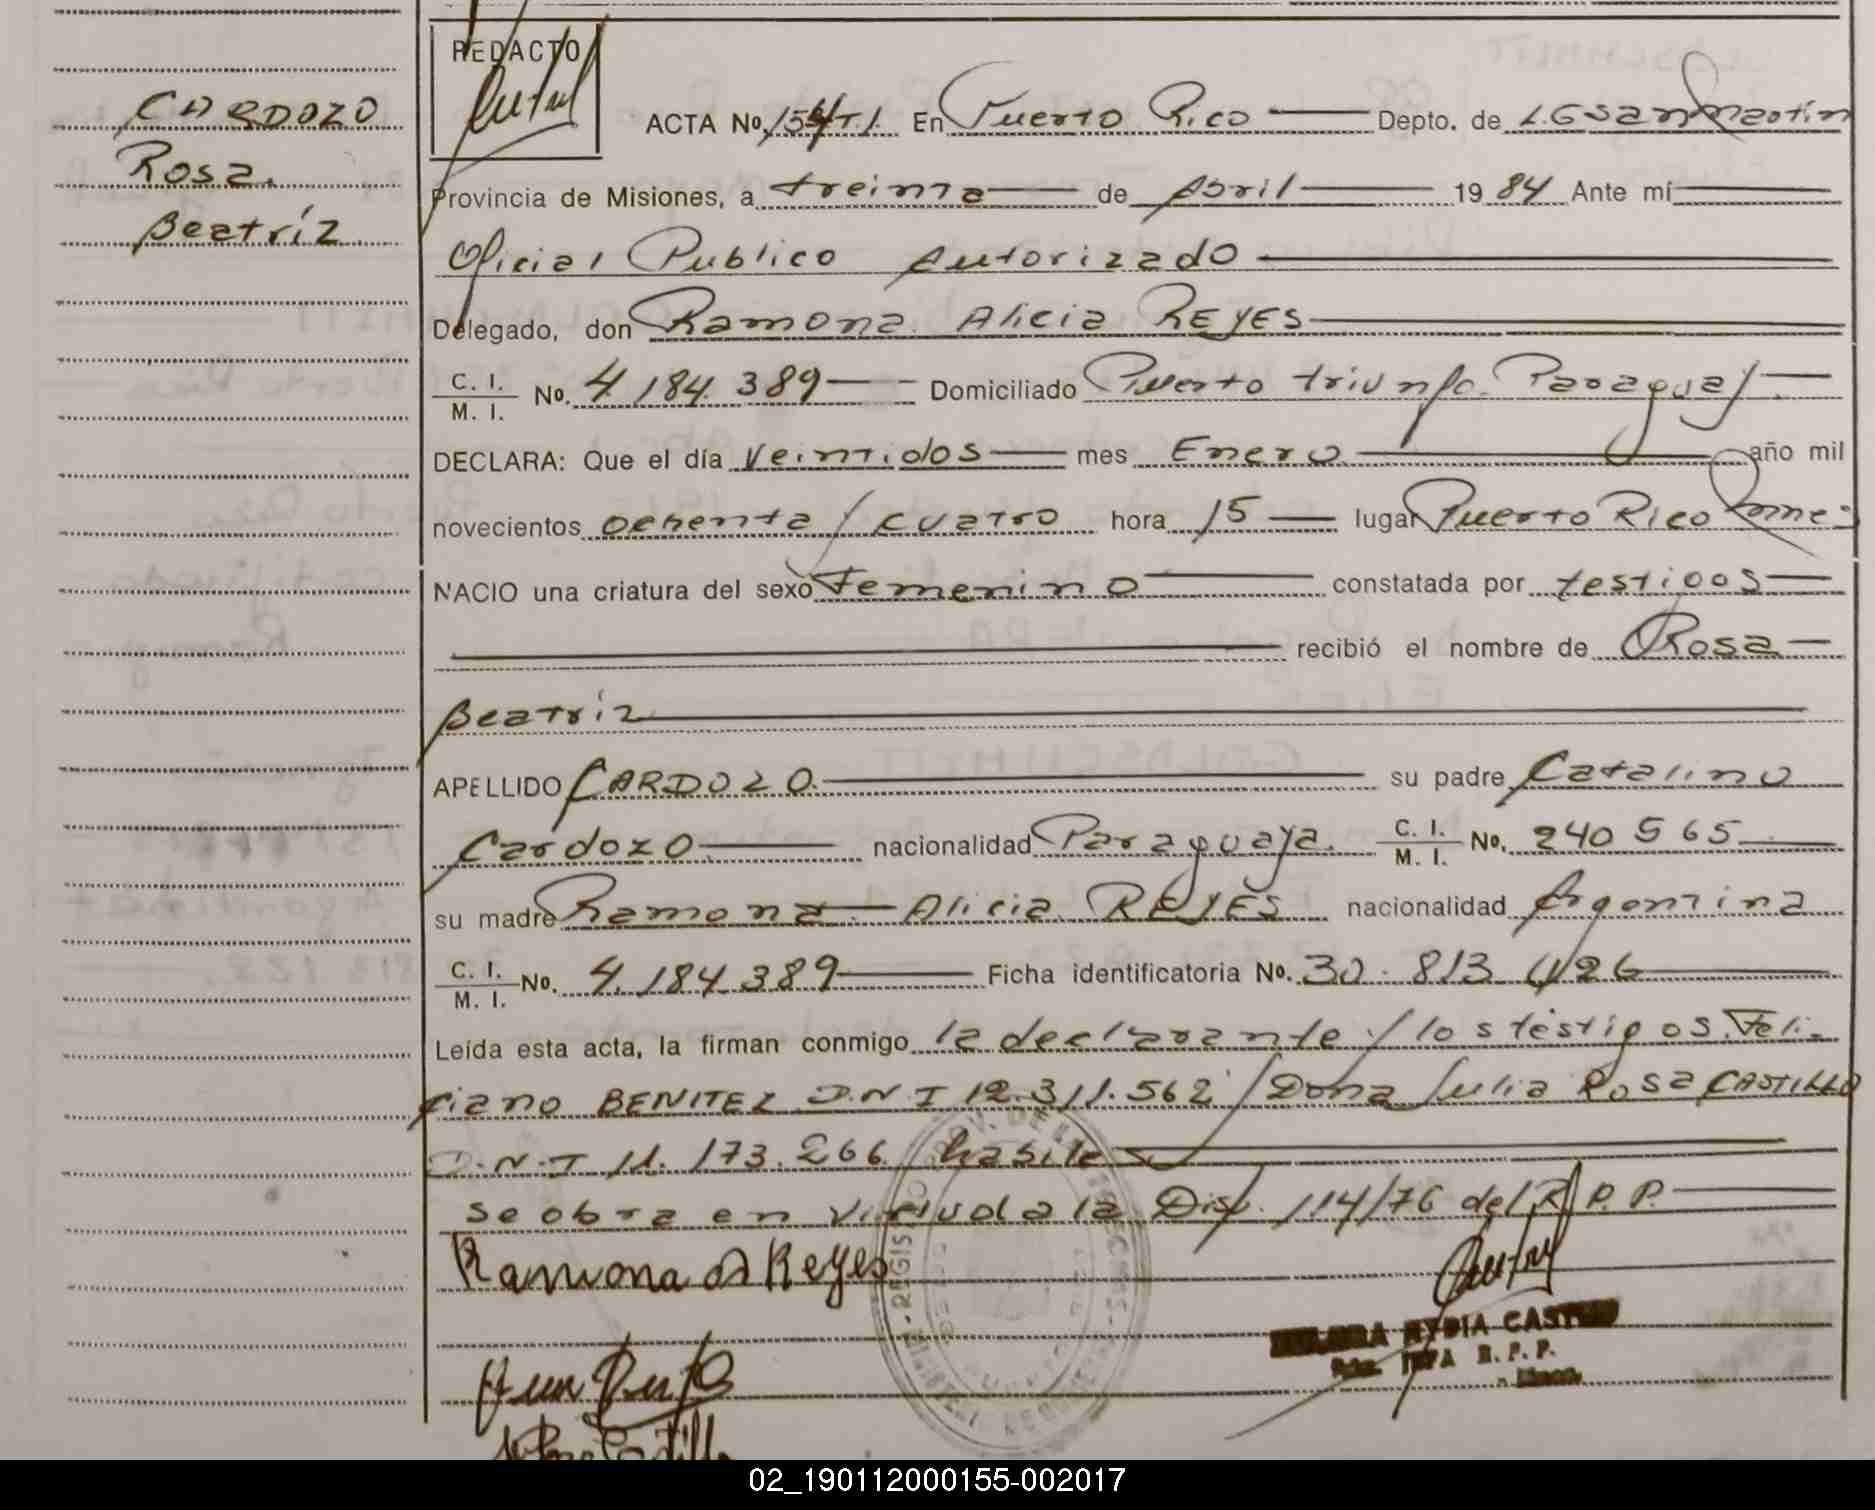 CARDOZO
Rosa
Beatríz
REDACTO
ACTA No. 154/T.I. En Puerto Rico Depto. de L.G San Martín
Provincia de Misiones, a treinta de Abril 1984 Ante mí
Oficial Publico Autorizado
Delegado, don Ramona Alicia REYES
C. I. M. I. No. 4.184.389 Domiciliado Puerto triunfo Paraguay
DECLARA: Que el día Veintidos mes Enero año mil
novecientos ochenta y cuatro hora 15 lugar Puerto Rico Mnes
NACIO una criatura del sexo Femenino constatada por testigos
recibió el nombre de Rosa
Beatríz
APELLIDO CARDOZO su padre Catalino
Cardozo nacionalidad Paraguaya C. I. M. I. No. 240 565
su madre Ramona Alicia REYES nacionalidad Argentina
C. I. M. I. No. 4.184.389 Ficha identificatoria No. 30.813.426
Leída esta acta, la firman conmigo la declarante y los testigos Feli-
ciano BENITEZ D.N.I 12.311.562 y Doña Julia Rosa CASTILLO
D.N.I 11.173.266 habiles
se obra en virtud a la Disp. 114/76 del R.P.P.
Ramona A Reyes
NYDIA CASTILLO
R. P. P.
02_190112000155-002017